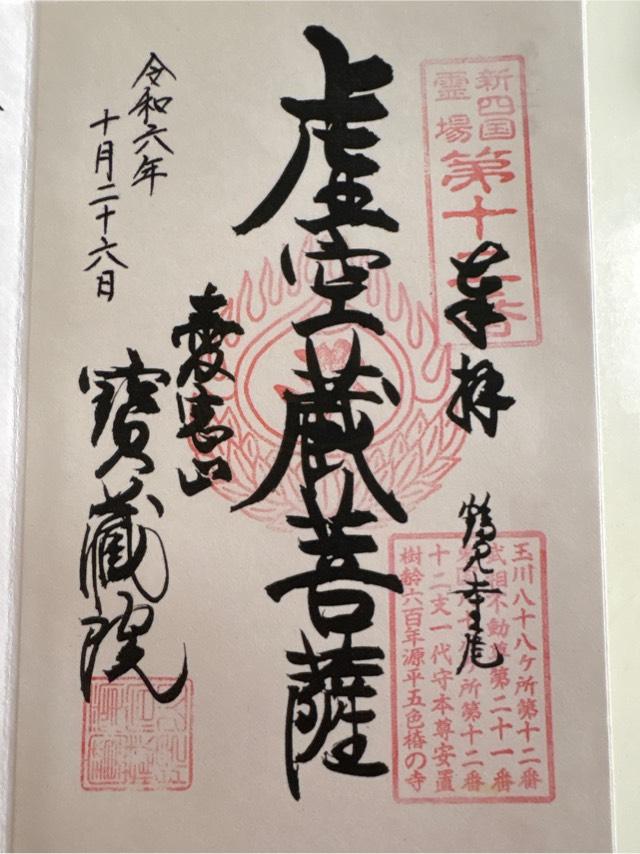 新四国
霊場
第十二番
奉拝
鶴見寺尾
玉川八十八ヶ所第十二番
武相不動尊第二十一番
ヶ所第十二番
十二支一代守本尊安置
樹齢六百年源平五色椿の寺
虚空蔵菩薩
愛宕山
寶蔵院
令和六年
十月二十六日